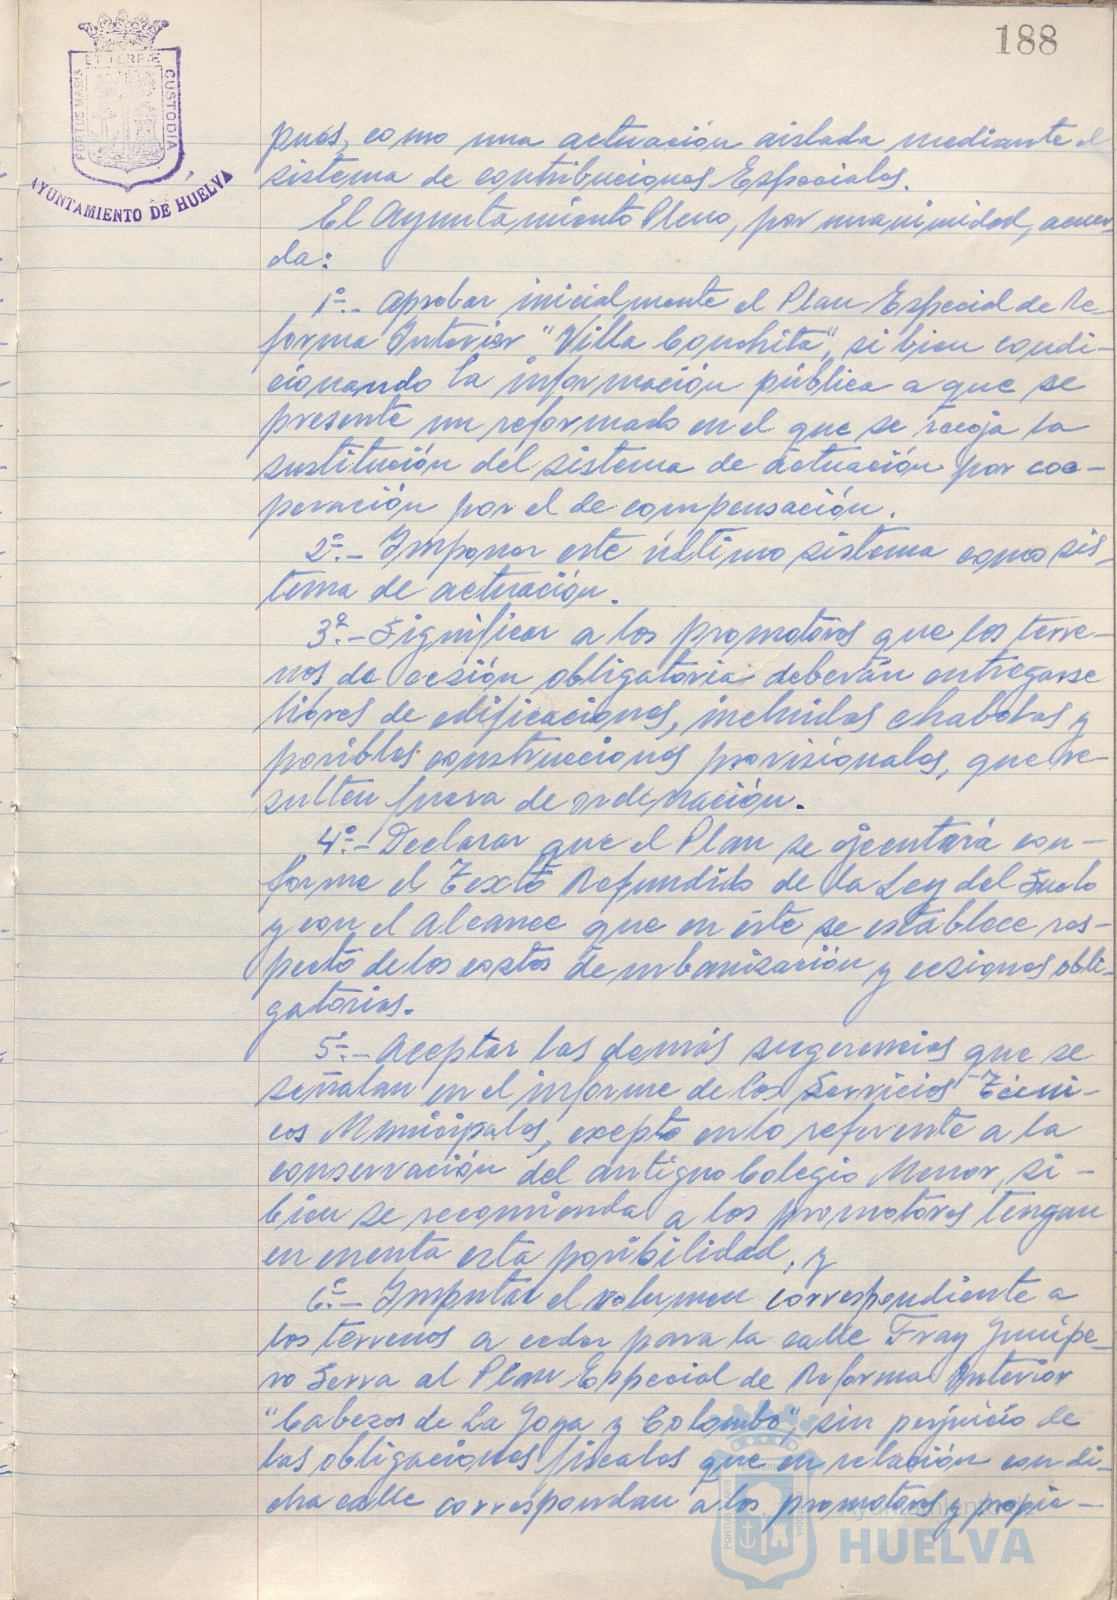 188
PORTUS MARIS ET TERRÆ CUSTODIA
AYUNTAMIENTO DE HUELVA
pués, como una actuación aislada mediante el
sistema de contribuciones Especiales.
El Ayuntamiento Pleno, por unanimidad, acuer-
da:
1º.- Aprobar inicialmente el Plan Especial de Re-
forma Interior "Villa Conchita", si bien condi-
cionando la información pública a que se
presente un reformado en el que se recoja la
sustitución del sistema de actuación por coo-
peración por el de compensación.
2º.- Imponer este último sistema como sis-
tema de actuación.
3º.- Significar a los promotores que los terre-
nos de cesión obligatoria deberán entregarse
libres de edificaciones, incluidas chabolas y
posibles construcciones provisionales, que re-
sulten fuera de ordenación.
4º.- Declarar que el Plan se ejecutará con-
forme el Texto Refundido de la Ley del Suelo
y con el alcance que en éste se establece res-
pecto de los costos de urbanización y cesiones obli-
gatorias.
5º.- Aceptar las demás sugerencias que se
señalan en el informe de los Servicios Técni-
cos Municipales, excepto en lo referente a la
conservación del antiguo Colegio Menor, si-
bien se recomienda a los promotores tengan
en cuenta esta posibilidad, y
6º.- Imputar el volumen correspondiente a
los terrenos a ceder para la calle Fray Junípe-
ro Serra al Plan Especial de Reforma Interior
"Cabezos de La Joya y Colombo", sin perjuicio de
las obligaciones fiscales que en relación con di-
cha calle correspondan a los promotores y propie-
Ayuntamiento de
HUELVA